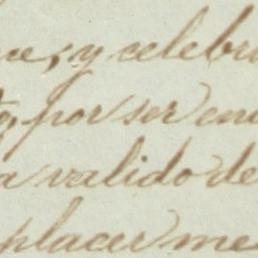 y celebr
por ser en
a valido de
placer me